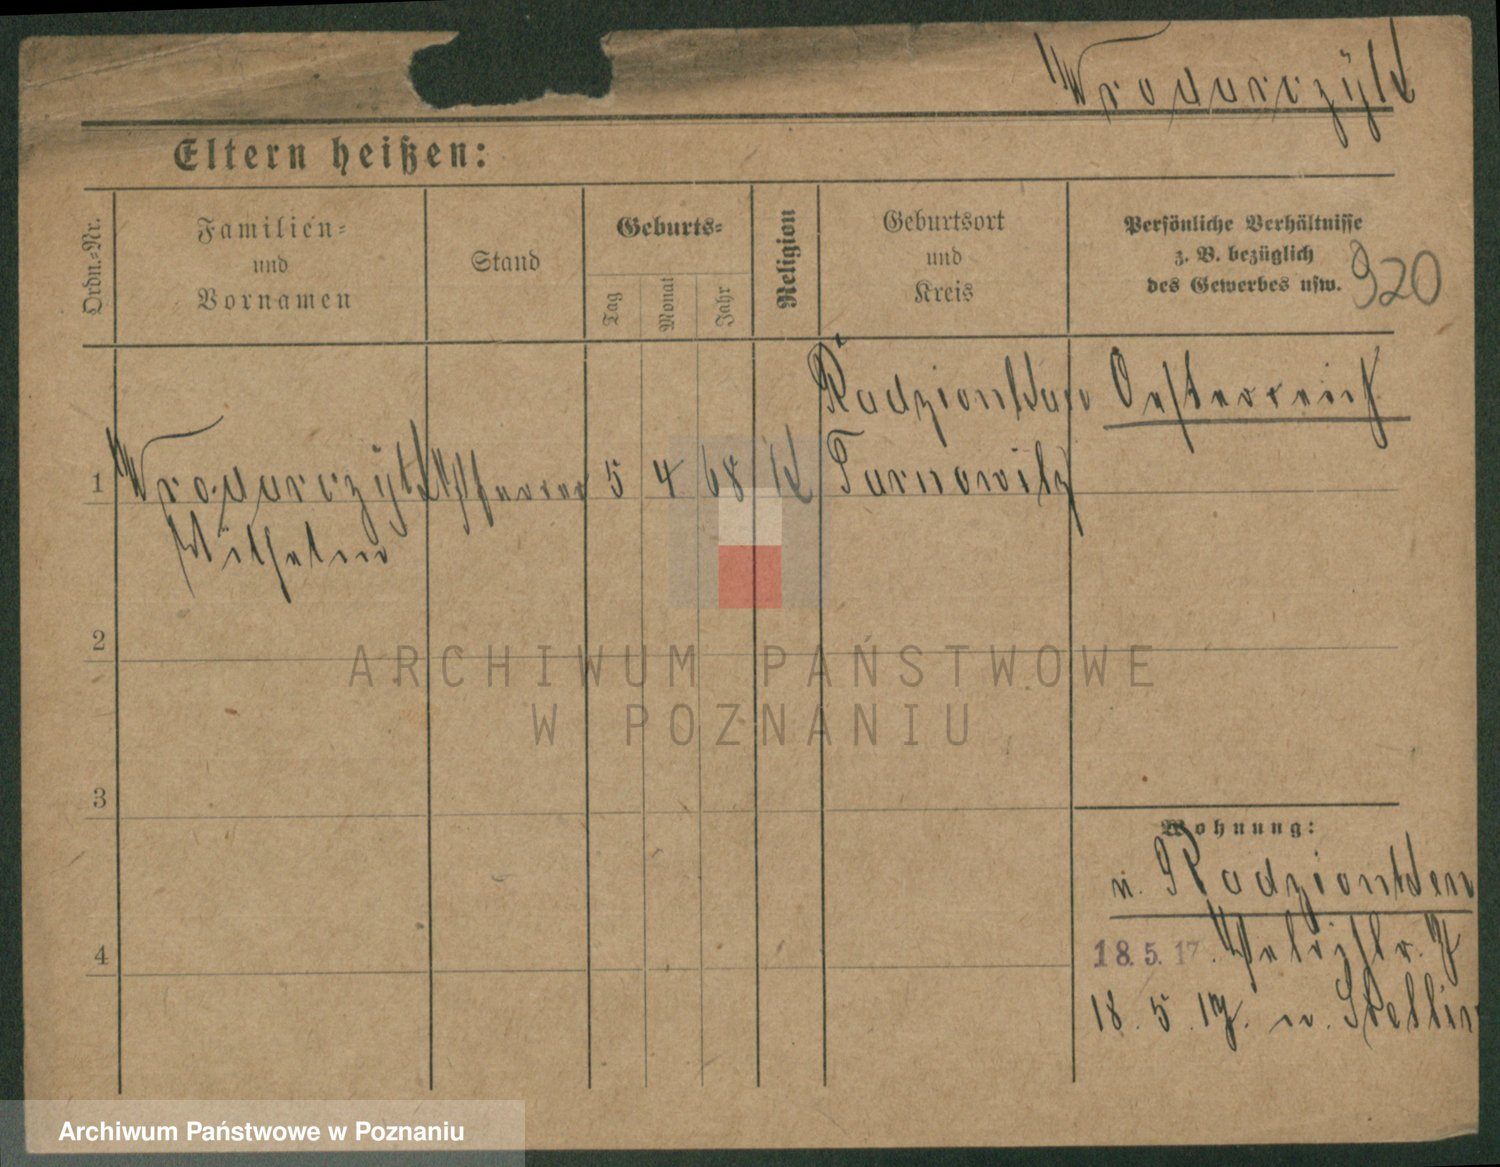 Wrodarczyk
Eltern heißen:
Ordn.-Nr.
Familien-
und
Vornamen
Stand
Geburts-
Tag
Monat
Jahr
Religion
Geburtsort
und
Kreis
Persönliche Verhältnisse
z. B. bezüglich
des Gewerbes usw.
920
Radzionkau Oesterreich
1 Wrodarczyk Pfarrer 5 4 68 K Tarnowitz
Wilhelm
2
ARCHIWUM PAŃSTWOWE
W POZNANIU
3
Wohnung:
n. Radzionkau
4
18. 5. 17.
18. 5. 17. n.
Archiwum Państwowe w Poznaniu